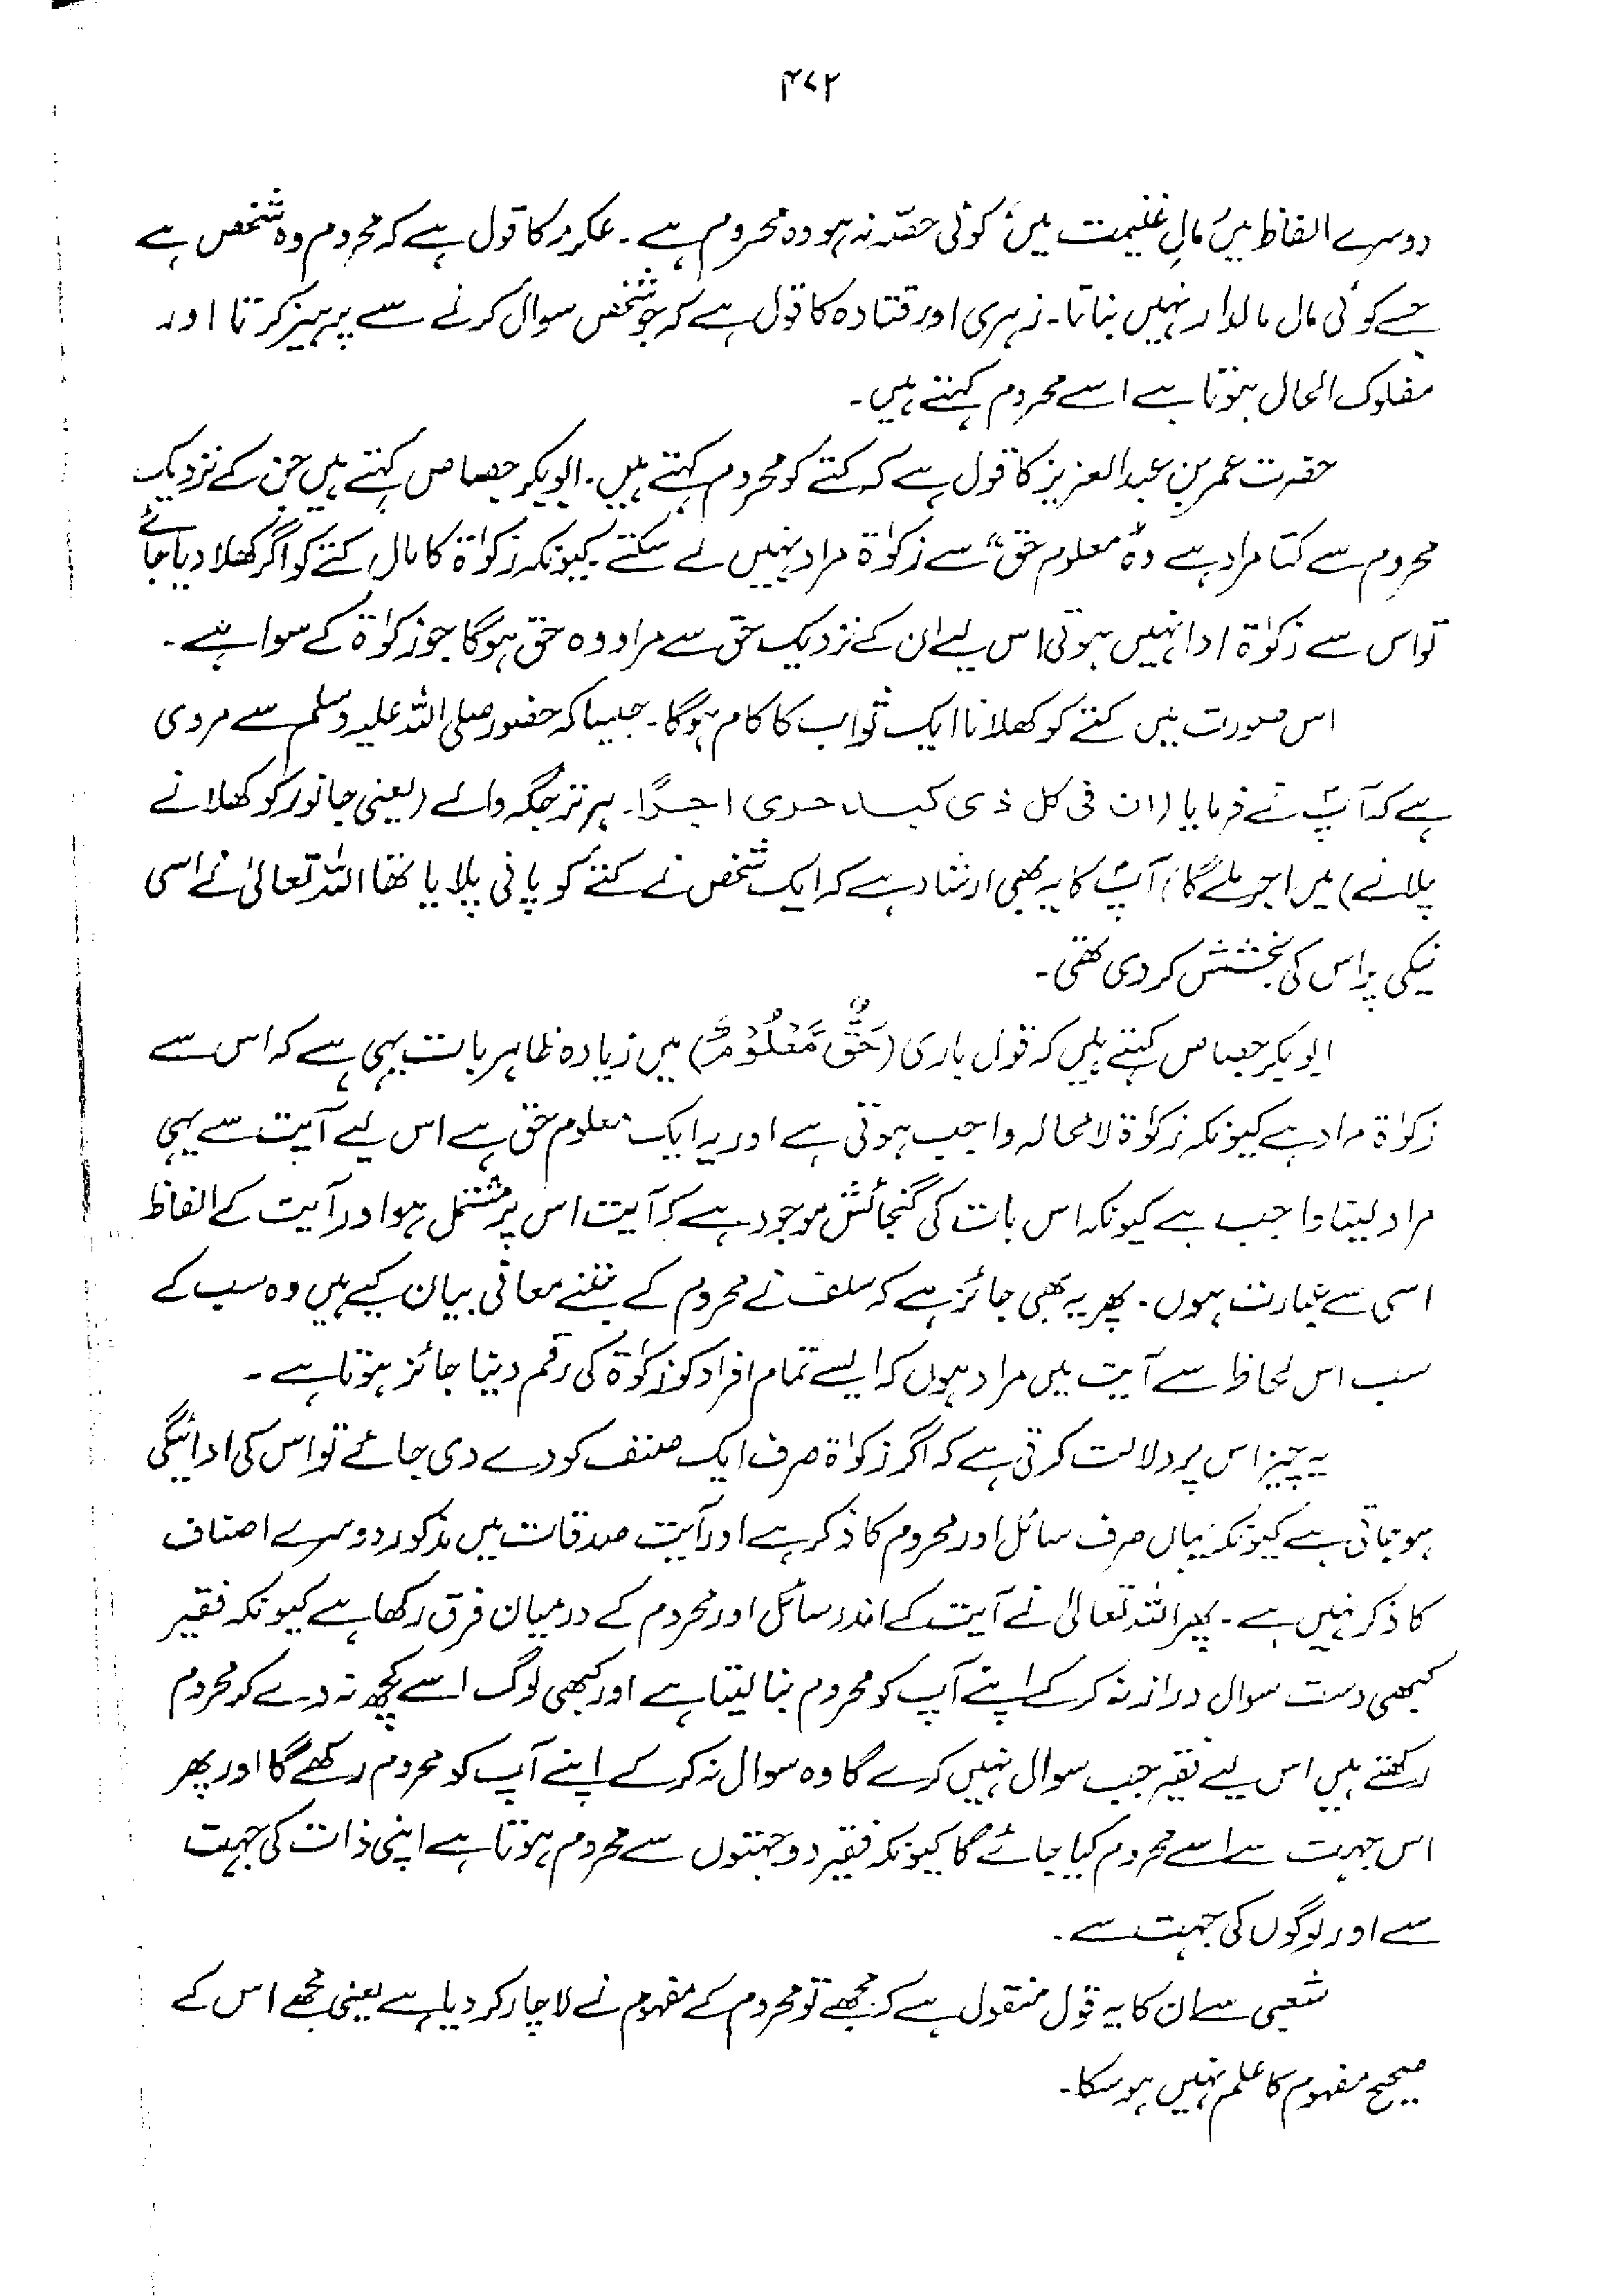 ۴۷۲
دوسرے الفاظ میں مالِ غنیمت میں کوئی حصّہ نہ ہو وہ محروم ہے۔ عکرمہ کا قول ہے کہ محروم وہ شخص ہے
جسے کوئی مال مالدار نہیں بناتا۔ زہری اور قتادہ کا قول ہے کہ جو شخص سوال کرنے سے پرہیز کرتا اور
مفلوک الحال ہوتا ہے اسے محروم کہتے ہیں۔
حضرت عمر بن عبد العزیز کا قول ہے کہ کتے کو محروم کہتے ہیں۔ ابو بکر جصاص کہتے ہیں جن کے نزدیک
محروم سے کتا مراد ہے وہ "معلوم حق" سے زکوٰۃ مراد نہیں لے سکتے کیونکہ زکوٰۃ کا مال کتے کو اگر کھلا دیا جائے
تو اس سے زکوٰۃ ادا نہیں ہوتی اس لیے ان کے نزدیک حق سے مراد وہ حق ہوگا جو زکوٰۃ کے سوا ہے۔
اس صورت میں کتے کو کھلانا ایک ثواب کا کام ہوگا۔ جیسا کہ حضور صلی اللہ علیہ وسلم سے مروی
ہے کہ آپؐ نے فرمایا (ان فی کل ذی کبد حری اجرًا۔ ہر تر جگر والے (یعنی جانور کو کھلانے
پلانے) میں اجر ملے گا) آپؐ کا یہ بھی ارشاد ہے کہ ایک شخص نے کتے کو پانی پلایا تھا اللہ تعالیٰ نے اسی
نیکی پر اس کی بخشش کر دی تھی۔
ابو بکر جصاص کہتے ہیں کہ قول باری (حَقٌّ مَّعْلُوْمٌ) میں زیادہ ظاہر بات یہی ہے کہ اس سے
زکوٰۃ مراد ہے کیونکہ زکوٰۃ لا محالہ واجب ہوتی ہے اور یہ ایک معلوم حق ہے اس لیے آیت سے یہی
مراد لینا واجب ہے کیونکہ اس بات کی گنجائش موجود ہے کہ آیت اس پر مشتمل ہو اور آیت کے الفاظ
اسی سے عبارت ہوں۔ پھر یہ بھی جائز ہے کہ سلف نے محروم کے جتنے معانی بیان کیے ہیں وہ سب کے
سب اس لحاظ سے آیت میں مراد ہوں کہ ایسے تمام افراد کو زکوٰۃ کی رقم دینا جائز ہوتا ہے۔
یہ چیز اس پر دلالت کرتی ہے کہ اگر زکوٰۃ صرف ایک صنف کو دے دی جائے تو اس کی ادائیگی
ہو جاتی ہے کیونکہ یہاں صرف سائل اور محروم کا ذکر ہے اور آیت صدقات میں مذکور دوسرے اصناف
کا ذکر نہیں ہے۔ پھر اللہ تعالیٰ نے آیت کے اندر سائل اور محروم کے درمیان فرق رکھا ہے کیونکہ فقیر
کبھی دست سوال دراز نہ کر کے اپنے آپ کو محروم بنا لیتا ہے اور کبھی لوگ اسے کچھ نہ دے کر محروم
رکھتے ہیں اس لیے فقیر جب سوال نہیں کرے گا وہ سوال نہ کر کے اپنے آپ کو محروم رکھے گا اور پھر
اس جہت سے اسے محروم کیا جائے گا کیونکہ فقیر دو جہتوں سے محروم ہوتا ہے اپنی ذات کی جہت
سے اور لوگوں کی جہت سے۔
شعبی سے ان کا یہ قول منقول ہے کہ مجھے تو محروم کے مفہوم نے لاچار کر دیا ہے یعنی مجھے اس کے
صحیح مفہوم کا علم نہیں ہو سکا۔